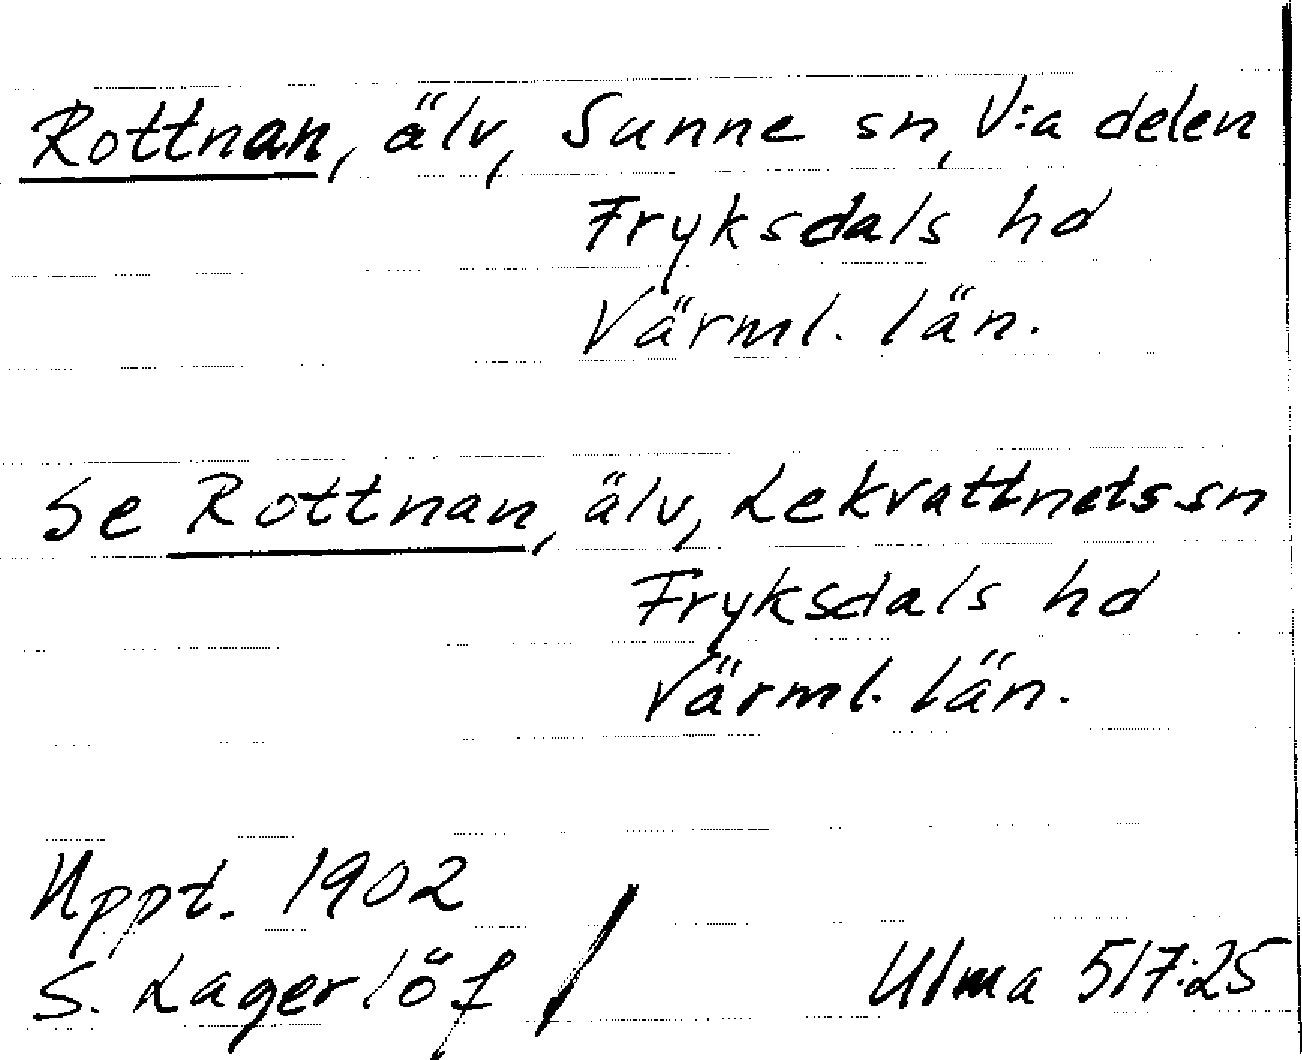 Rottnan, älv, Sunne sn, V:a delen
Fryksdals hd
Värml. län.
Se Rottnan, älv, Lekvattnets sn
Fryksdals hd
Värml. län.
Uppt. 1902
S. Lagerlöf / Ulma 517:25